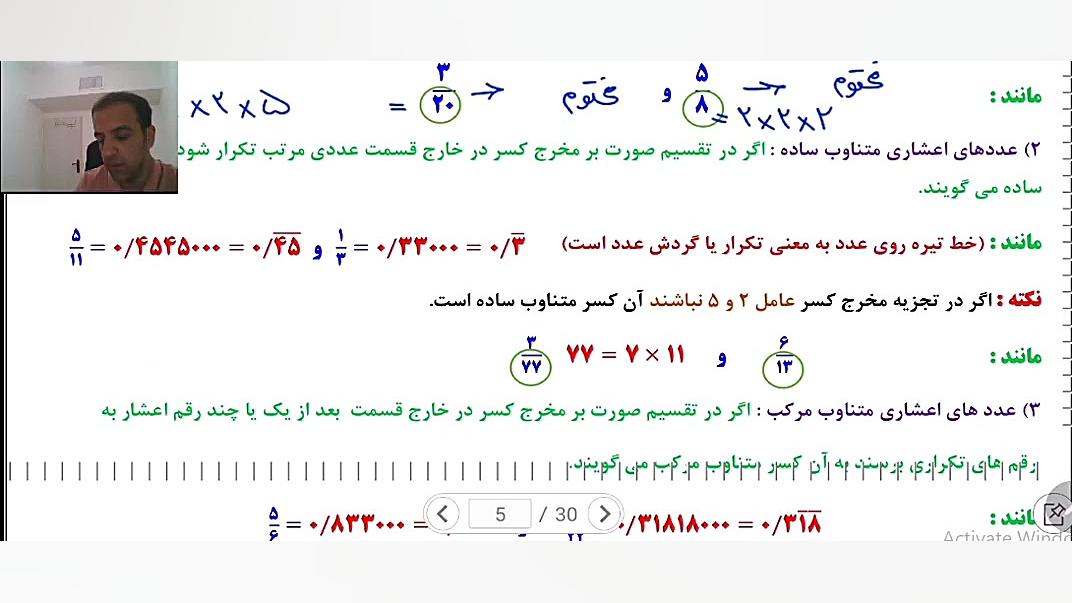 مانند : ۵/۸ = ۲×۲×۲ → مختوم و ۳/۲۰ → مختوم = ×۲×۵
۲) عددهای اعشاری متناوب ساده : اگر در تقسیم صورت بر مخرج کسر در خارج قسمت عددی مرتب تکرار شود
ساده می گویند.
مانند : (خط تیره روی عدد به معنی تکرار یا گردش عدد است) ۱/۳ = ۰/۳۳۰۰۰ = ۰/۳̅ و ۵/۱۱ = ۰/۴۵۴۵۰۰۰ = ۰/۴̅۵̅
نکته : اگر در تجزیه مخرج کسر عامل ۲ و ۵ نباشند آن کسر متناوب ساده است.
مانند : ۶/۱۳ و ۷۷ = ۷ × ۱۱ ۳/۷۷
۳) عدد های اعشاری متناوب مرکب : اگر در تقسیم صورت بر مخرج کسر در خارج قسمت بعد از یک یا چند رقم اعشار به
رقم های تکراری برسند به آن کسر متناوب مرکب می گویند.
مانند : ۰/۳۱۸۱۸۰۰۰ = ۰/۳۱̅۸̅ ۵/۶ = ۰/۸۳۳۰۰۰ =
5 / 30